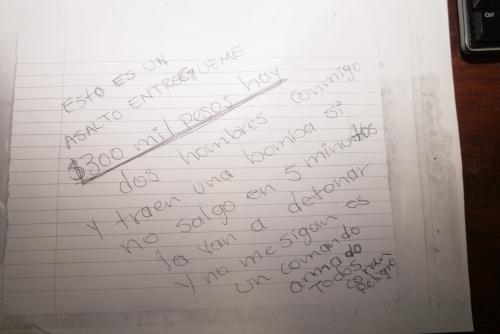 ESTO ES UN
ASALTO ENTREGUEME
$300 mil pesos hay
dos hombres conmigo
y traen una bomba si
no salgo en 5 minutos
la van a detonar
y no me sigan es
un comando
armado
Todos
corren
Peligro
Ctrl